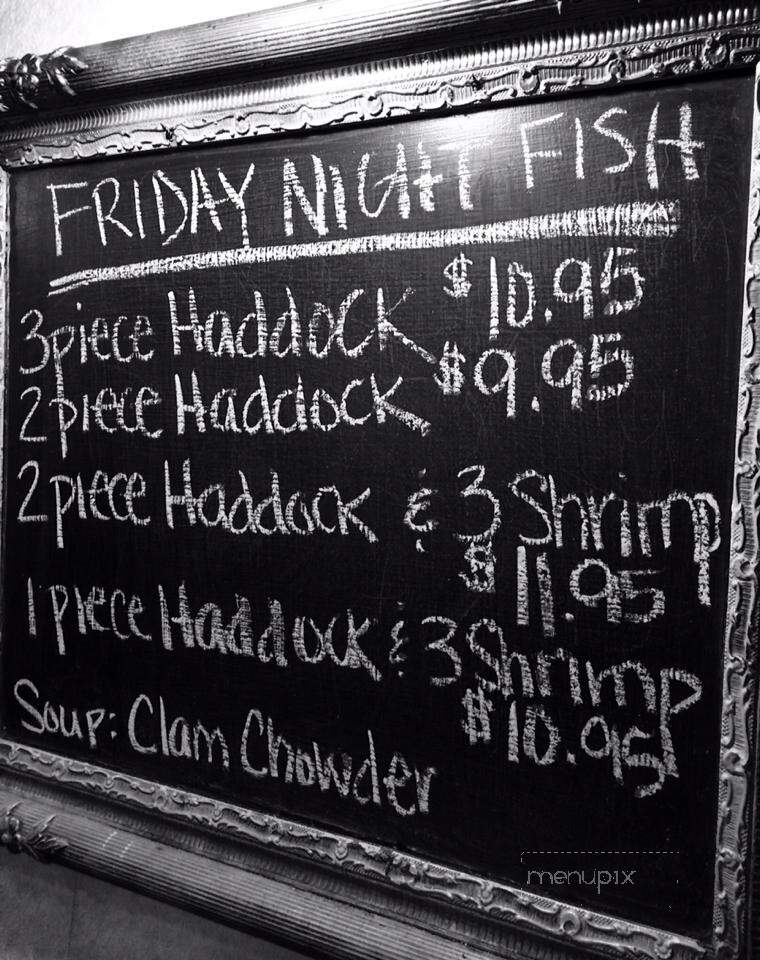 FRIDAY NIGHT FISH
3piece Haddock $10.95
2piece Haddock $9.95
2piece Haddock & 3 Shrimp
$11.95
1piece Haddock & 3 Shrimp
$10.95
Soup: Clam Chowder
menupix